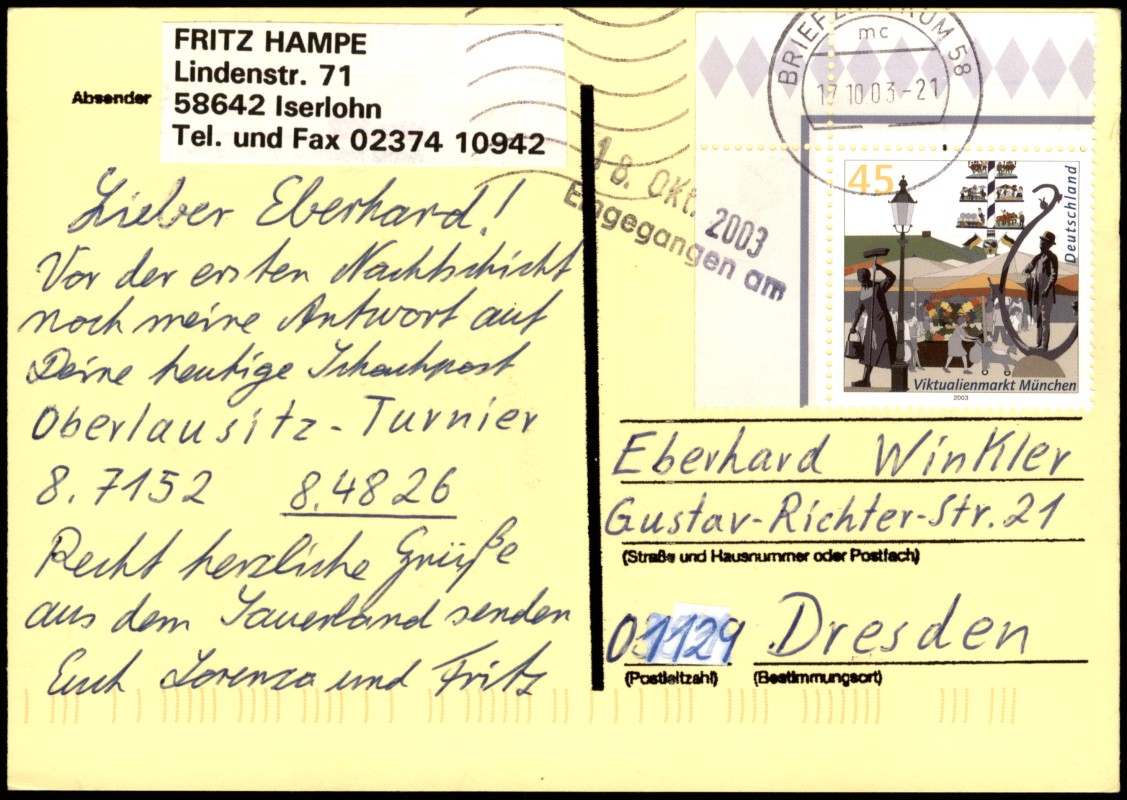 FRITZ HAMPE
Lindenstr. 71
58642 Iserlohn
Tel. und Fax 02374 10942
Absender
Lieber Eberhard!
Vor der ersten Nachtschicht
noch meine Antwort auf
Deine heutige Schachpost
Oberlausitz-Turnier
8. 7152 8. 4826
Recht herzliche Grüße
aus dem Sauerland senden
Euch Lorenza und Fritz
BRIEFZENTRUM 58
mc
17.10.03-21
18. Okt. 2003
Eingegangen am
45
Deutschland
Viktualienmarkt München
2003
Eberhard Winkler
Gustav-Richter-Str. 21
(Straße und Hausnummer oder Postfach)
01129 Dresden
(Postleitzahl) (Bestimmungsort)